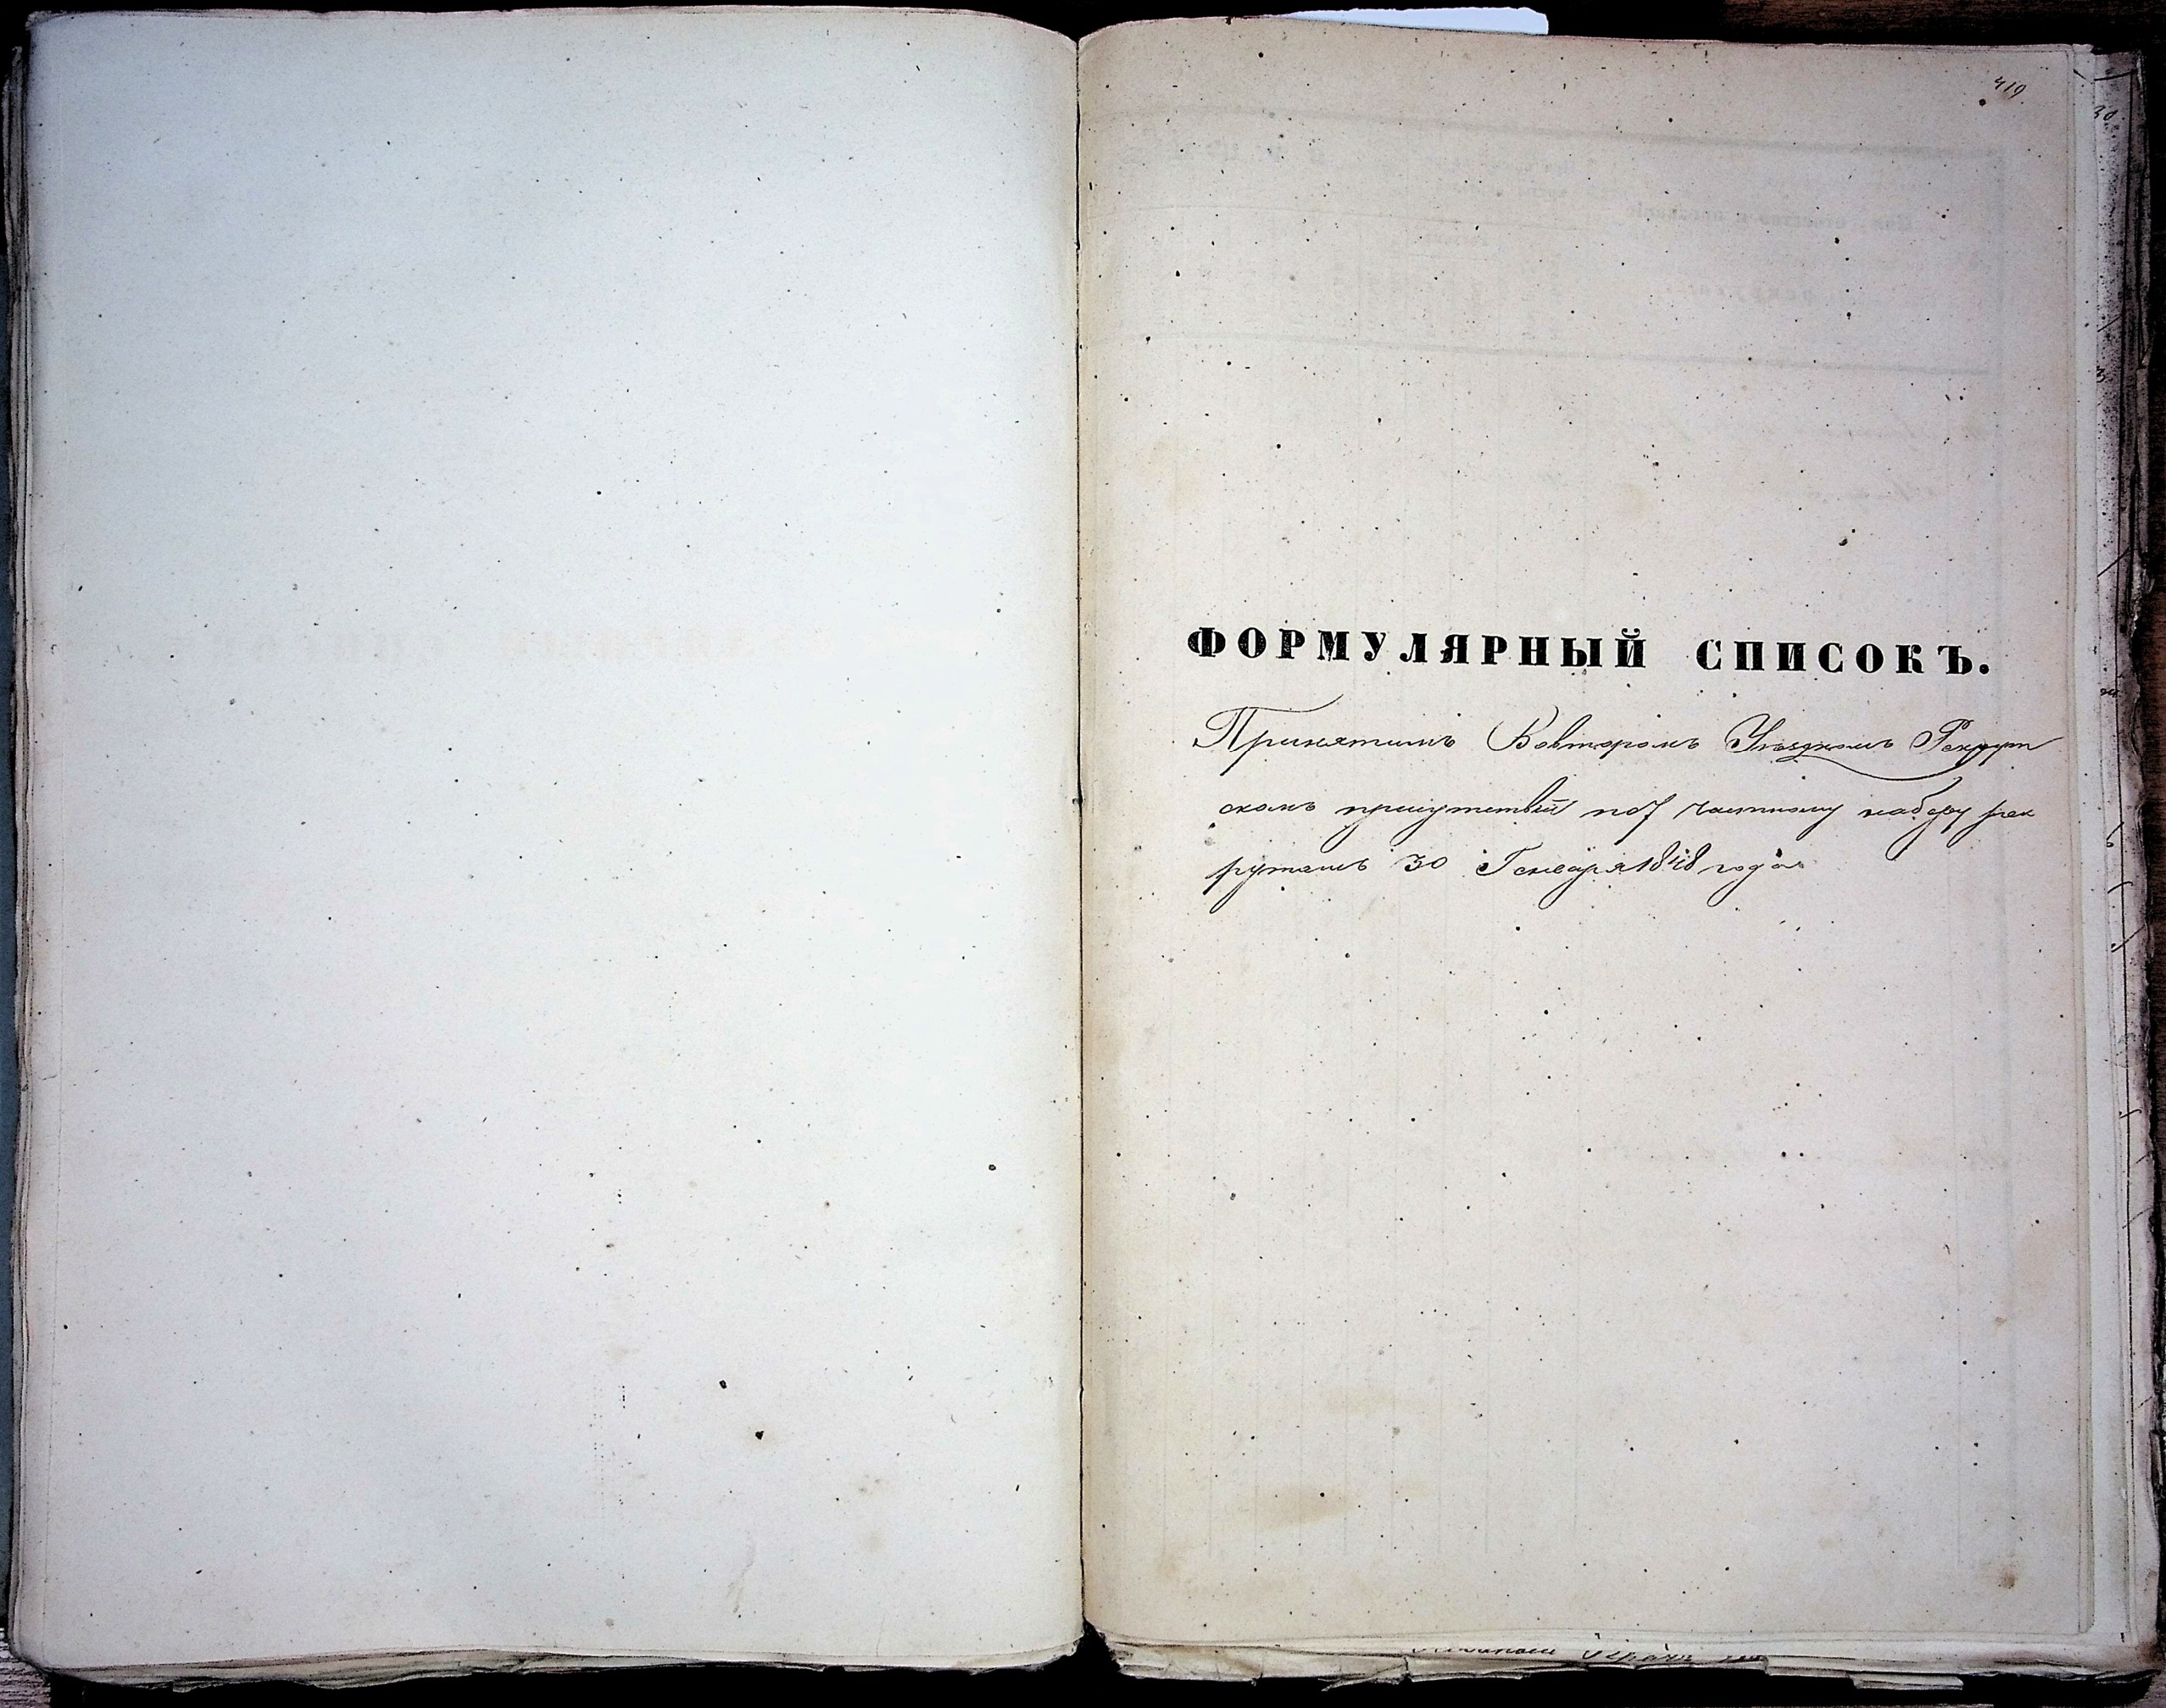 419.
ФОРМУЛЯРНЫЙ СПИСОКЪ.
Принятымъ Вовторомъ Уѣздномъ Рекрут
скомъ присутствіи по 7 частному набору рек
рутамъ 30 Генваря 1848 года